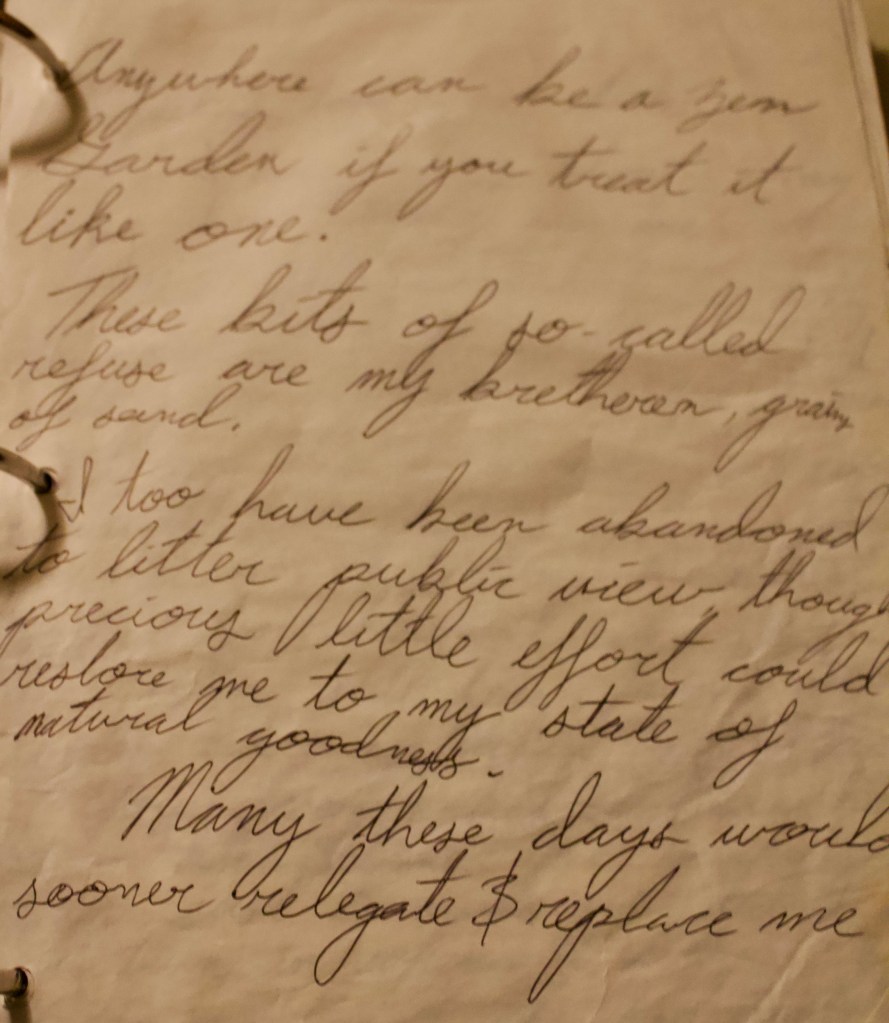 Anywhere can be a zen
Garden if you treat it
like one.
These bits of so-called
refuse are my bretheren, grains
of sand.
I too have been abandoned
to litter public view, though
precious little effort could
restore me to my state of
natural goodness.
Many these days would
sooner relegate & replace me